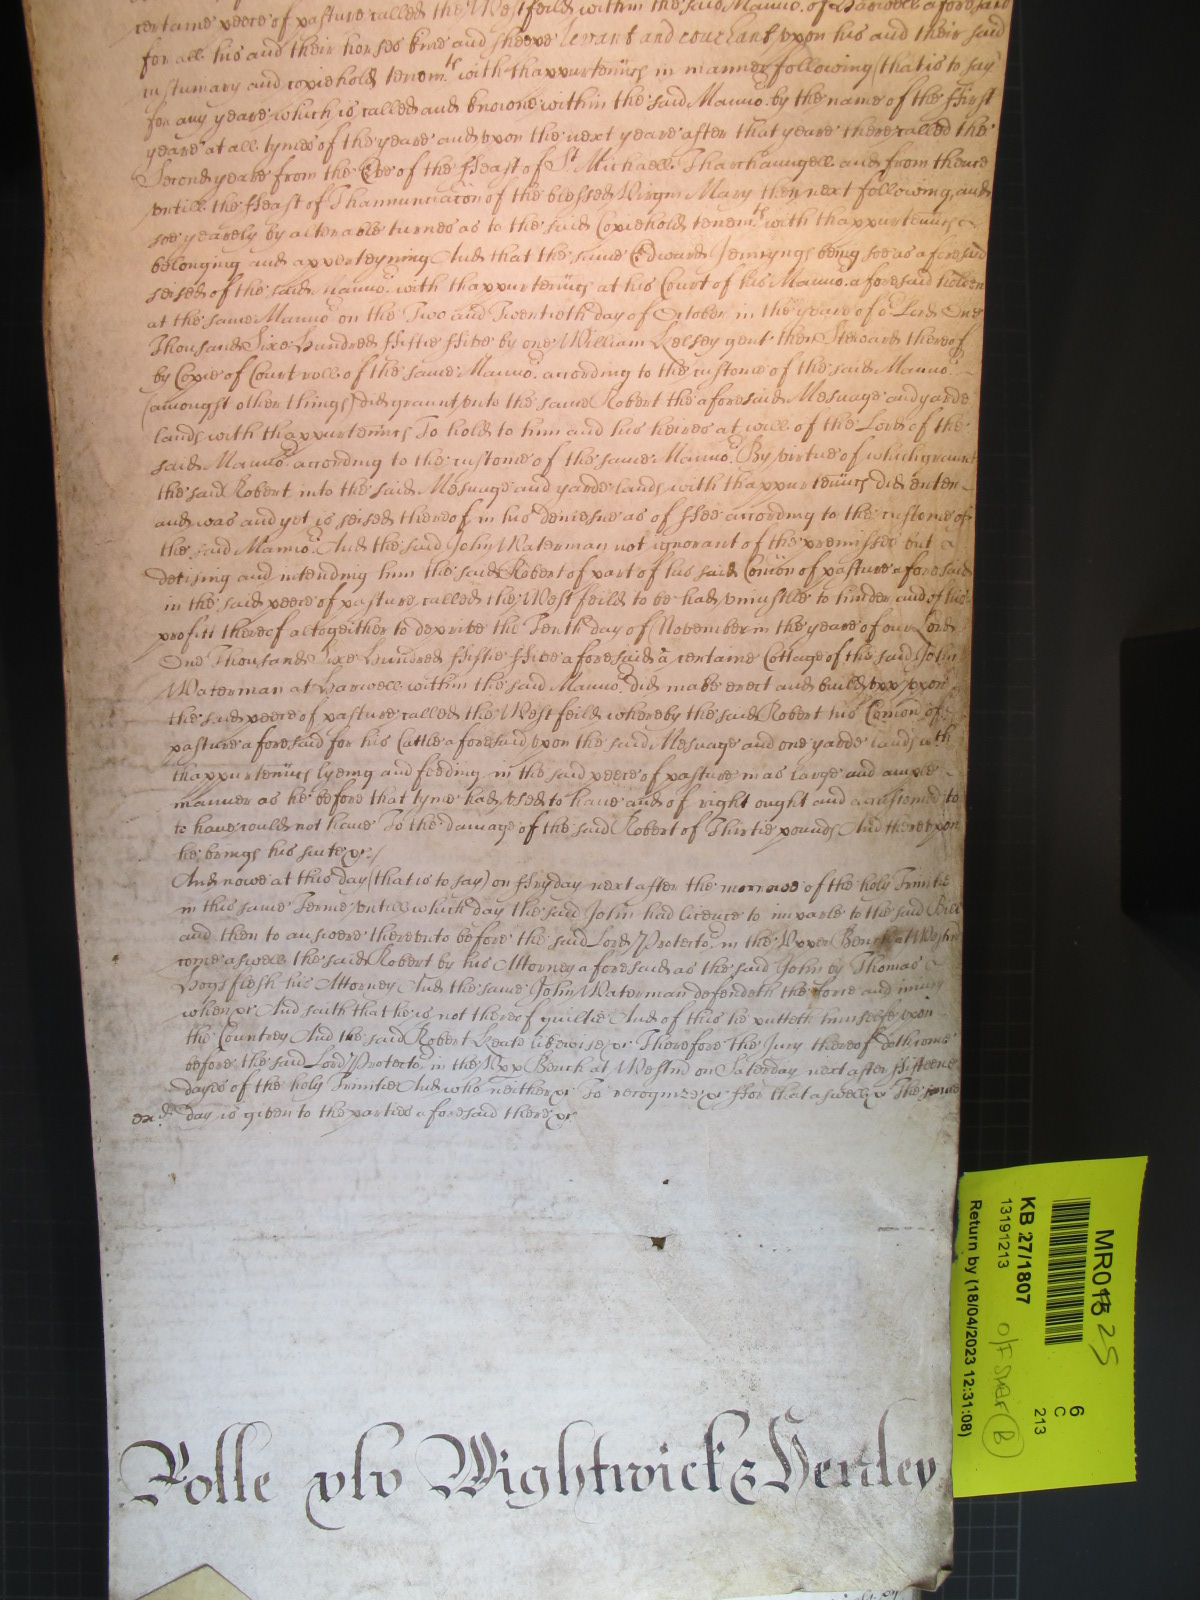 certaine peece of pasture called the Westfeild within the said Manno.r of Harwell aforesaid
for all his and their horses kine and sheepe levant and couchant vpon his and their said
customary and copiehold tenem.ts with thappurtenn̄cs in manner following (that is to say
for any yeare which is called and knowne within the said Manno.r by the name of the ffirst
yeare at all tymes of the yeare and vpon the next yeare after that yeare there called the
Second yeare from the Eve of the ffeast of S.t Michaell Tharchaungell and from thence
vntill the ffeast of Thannunciac̄on of the blessed Virgin Mary then next following, and
soe yearely by alterable turnes as to the said Copiehold tenem.ts with thappurtenn̄cs
belonging and apperteyning And that the same Edward Jennyngs being soe as aforesaid
seised of the said manno.r with thappurtenn̄cs at his Court of his Manno.r aforesaid holden
at the same Manno.r on the Two and Twentieth day of October in the yeare of o.r Lord One
Thousand Sixe Hundred ffiftie ffive by one William Kelsey gent then Steward thereof
by Copie of Court roll of the same Manno.r according to the custome of the said Manno.r
(amongst other things) did graunt vnto the same Robert the aforesaid Mesuage and yarde
lands with thappurtenn̄cs To hold to him and his heires at will of the Lord of the
said Manno.r according to the custome of the same Manno.r By virtue of which graunt
the said Robert into the said Mesuage and yarde lands with thappurtenn̄cs did enter
and was and yet is seised thereof in his demesne as of ffee according to the custome of
the said Manno.r And the said John Waterman not ignorant of the premisses but
devising and intending him the said Robert of part of his said Com̄on of pasture aforesaid
in the said peece of pasture called the Westfeild to be had vniustlie to hinder and of his
profitt thereof altogeither to deprive the Tenth day of November in the yeare of our Lord
One Thousand Sixe Hundred ffiftie ffive aforesaid a certaine Cottage of the said John
Waterman at Harwell within the said Manno.r did make erect and build vpp vpon
the said peece of pasture called the Westfeild whereby the said Robert his Com̄on of
pasture aforesaid for his Cattle aforesaid vpon the said Mesuage and one yarde lands with
thappurtenn̄cs lyeing and feeding in the said peece of pasture in as large and ample
manner as he before that tyme had vsed to have and of right ought and accustomed to
to have could not have To the damage of the said Robert of Thirtie pounds And therevpon
he brings his suite &c./
And nowe at this day (that is to say) on ffryday next after the morrowe of the holy Trinitie
in this same Terme vntill which day the said John had licence to imparle to the said Bill
and then to answere therevnto before the said Lord Protecto.r in the Vpper Bench at Westm̄
come aswell the said Robert by his Attorney aforesaid as the said John by Thomas
Hogsflesh his Attorney And the same John Waterman defendeth the force and iniury
when &c And saith that he is not thereof guiltie And of this he putteth himselfe vpon
the Countrey And the said Robert Keate likewise &c Therefore the Jury thereof doth come
before the said Lord Protecto.r in the Vpp Bench at Westm̄ on Saterday next after ffifteene
dayes of the holy Trinitie And who neither &c To recognize &c ffor that aswell &c The same
ex.d day is given to the parties aforesaid there &c
Rolle plp Wightwick & Henley
MR018 25
KB 27/1807
13191213
Return by (18/04/2023 12:31:08)
6
C
213
B